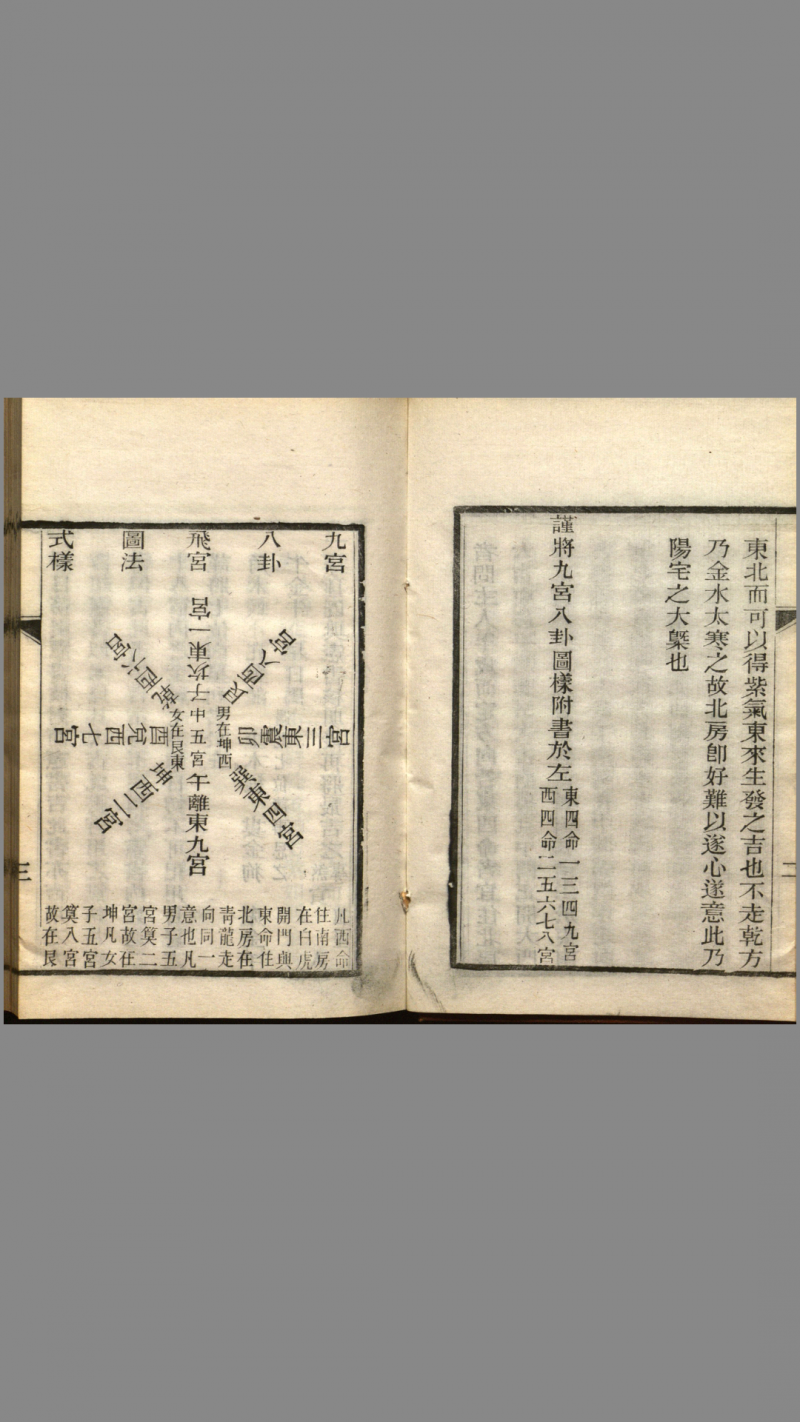 東北而可以得紫氣東來生發之吉也不走乾方
乃金水太寒之故北房卽好難以遂心遂意此乃
陽宅之大槩也
謹將九宮八卦圖樣附書於左
東四命一三四九宮
西四命二五六七八宮
二
九宮
八卦
飛宮
圖法
式樣
子坎東一宮
艮西八宮
卯震東三宮
巽東四宮
午離東九宮
坤西二宮
酉兌西七宮
乾西六宮
男在坤西
中五宮
女在艮東
凡西命
住南房
在白虎
開門與
東命住
北房在
青龍走
向同一
意也凡
男子五
宮算二
宮故在
坤凡女
子五宮
算入宮
故在艮
三